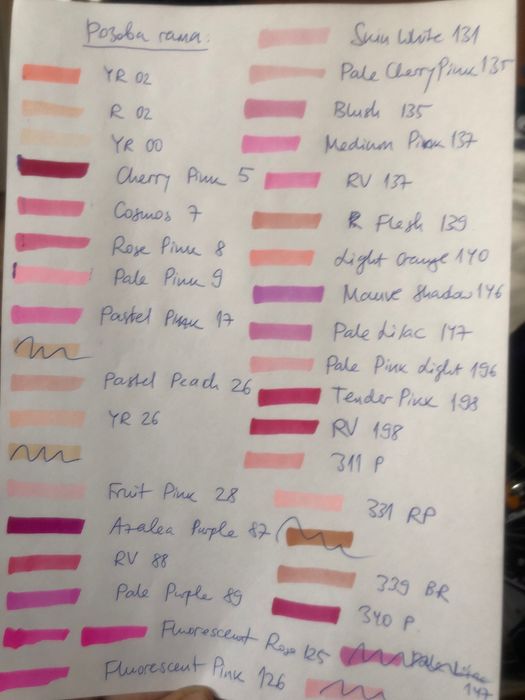 Розова гама:
YR 02
R 02
YR 00
Cherry Pink 5
Cosmos 7
Rose Pink 8
Pale Pink 9
Pastel Pink 17
Pastel Peach 26
YR 26
Fruit Pink 28
Azalea Purple 87
RV 88
Pale Purple 89
Fluorescent Rose 125
Fluorescent Pink 126
Skin White 131
Pale Cherry Pink 135
Blush 135
Medium Pink 137
RV 137
Flesh 139
Light Orange 140
Mauve Shadow 146
Pale Lilac 147
Pale Pink Light 196
Tender Pink 193
RV 198
311 P
331 RP
339 BR
340 P
Pale Lilac
147